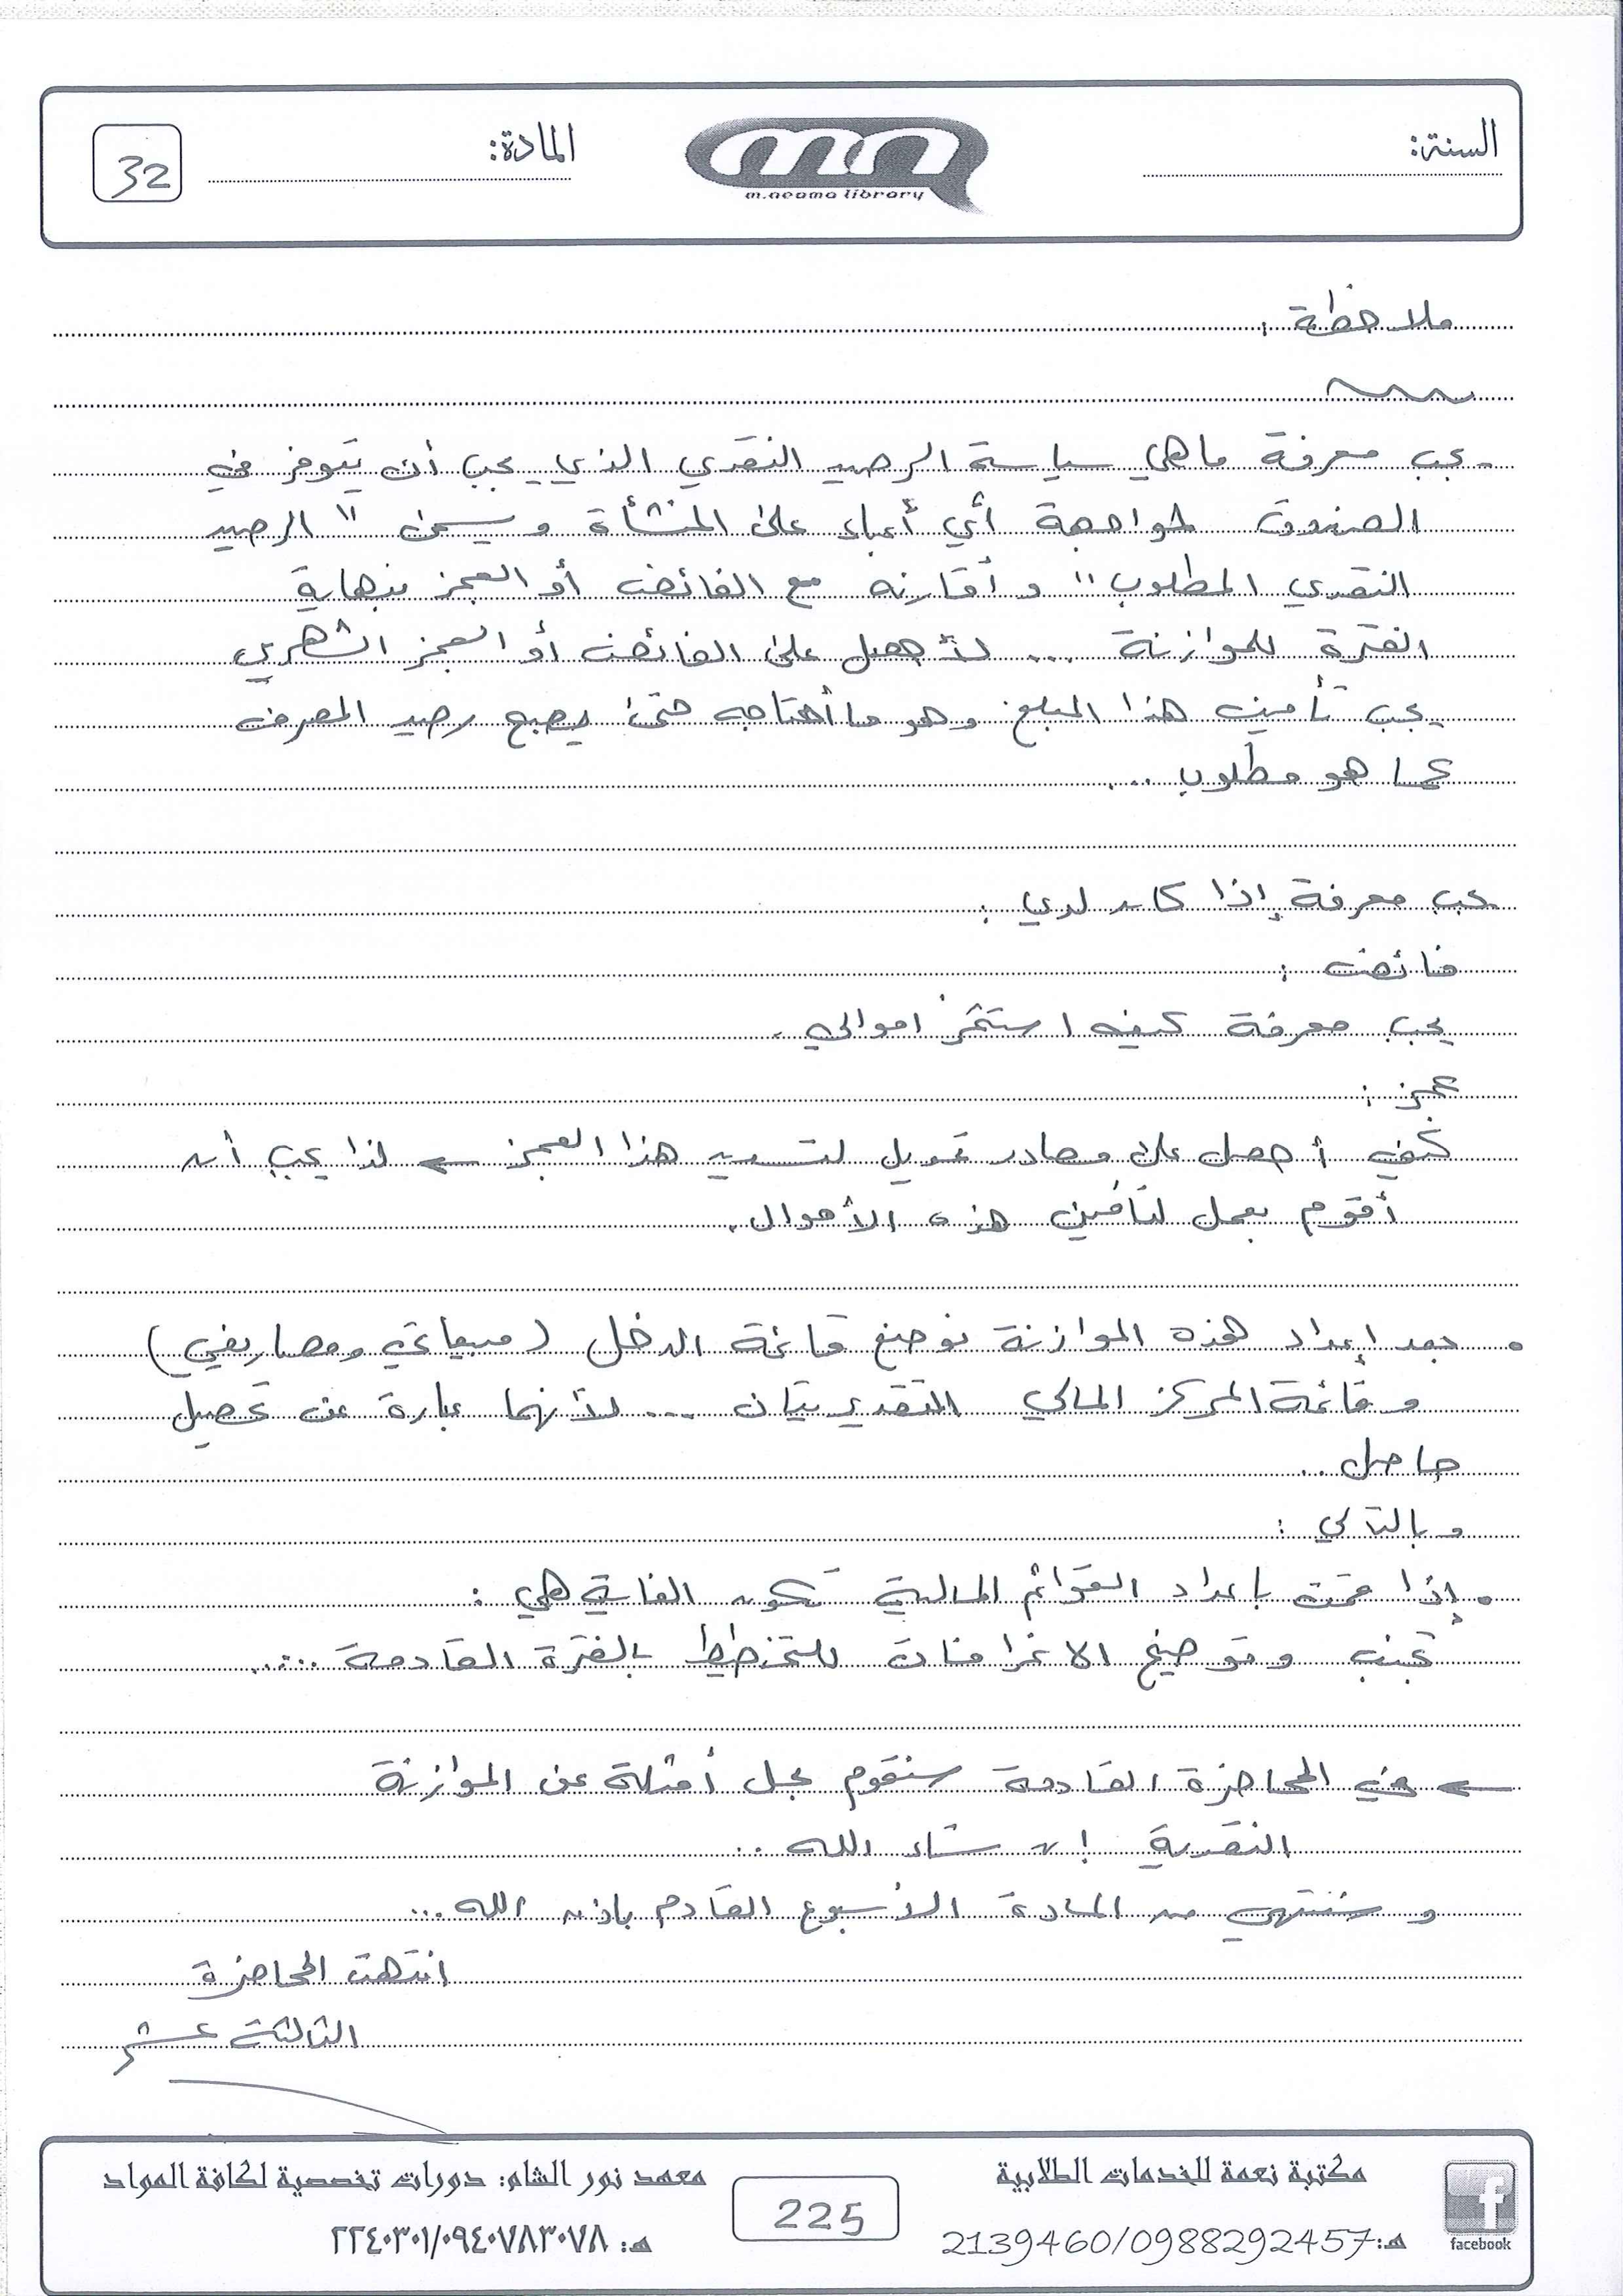 السنة:
المادة:
32
m.neama library
ملاحظة :
- يجب معرفة ماهي سياسة الرصيد النقدي الذي يجب أن يتوفر في
الصندوق لمواجهة أي أعباء على المنشأة ويسمى " الرصيد
النقدي المطلوب " و أقارنه مع الفائض أو العجز بنهاية
الفترة للموازنة ... لأحصل على الفائض أو العجز الشهري
يجب تأمين هذا المبلغ وهو ما أحتاجه حتى يصبح رصيد المصرف
كما هو مطلوب ...
يجب معرفة إذا كان لدي :
فائض :
يجب معرفة كيف استثمر اموالي .
عجز :
كيف أحصل على مصادر تمويل لتسديد هذا العجز ← لذا يجب أن
أقوم بعمل لتأمين هذه الأموال .
• بعد إعداد هذه الموازنة نوضع قائمة الدخل ( مبيعاتي ومصاريفي )
و قائمة المركز المالي التقديريتان ... لأنهما عبارة عن تحصيل
حاصل ..
و بالتالي :
• إذا قمت بإعداد القوائم المالية تكون الغاية هي :
تجنب وتوضيح الانحرافات للتخطيط بالفترة القادمة .....
← في المحاضرة القادمة سنقوم بحل أمثلة عن الموازنة
النقدية إن شاء الله ..
و سننتهي من المادة الأسبوع القادم بإذن الله ...
انتهت المحاضرة
الثالثة عشر
مكتبة نعمة للخدمات الطلابية
هـ: 2139460/0988292457
225
معهد نور الشام: دورات تخصصية لكافة المواد
هـ: ٢٢٤٠٣٠١/٠٩٤٠٧٨٣٠٧٨
facebook